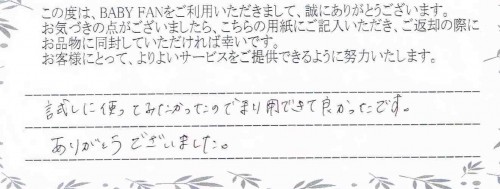 この度は、BABY FANをご利用いただきまして、誠にありがとうございます。
お気づきの点がございましたら、こちらの用紙にご記入いただき、ご返却の際に
お品物に同封していただければ幸いです。
お客様にとって、よりよいサービスをご提供できるように努力いたします。
試しに使ってみたかったのでまり用できて良かったです。
ありがとうございました。